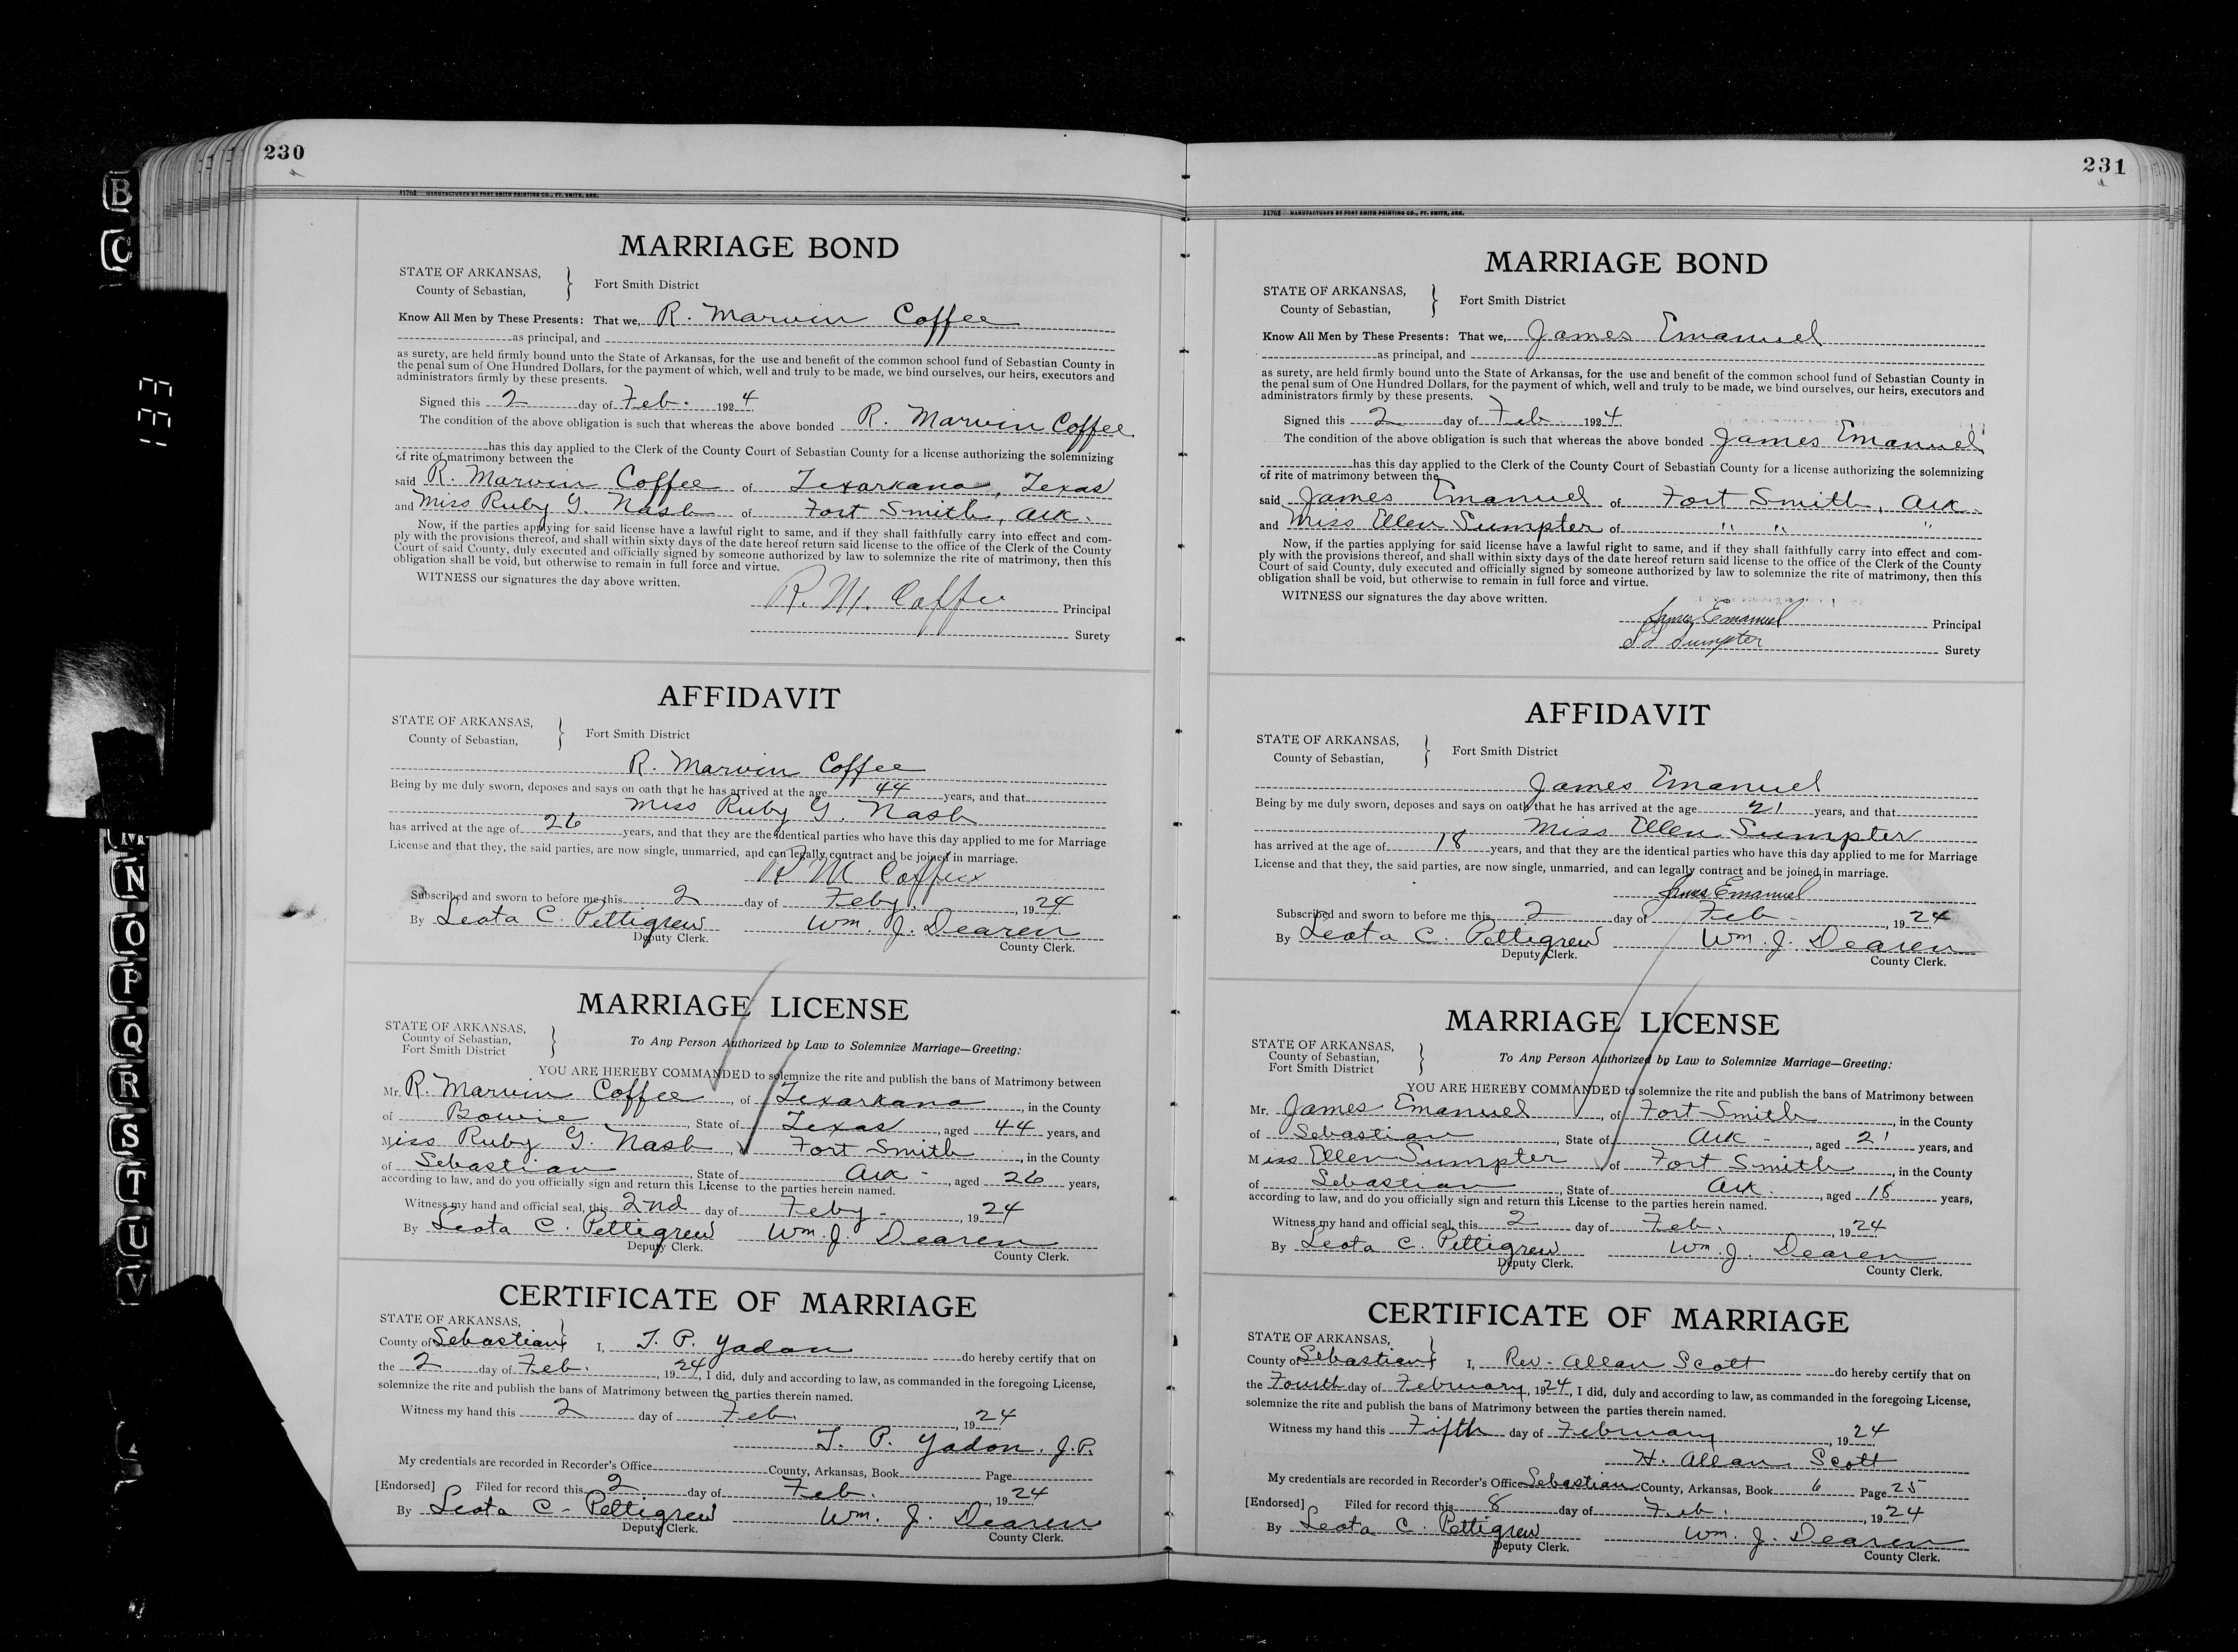 230
11702 MANUFACTURED BY FORT SMITH PRINTING CO., FT. SMITH, ARK.
MARRIAGE BOND
STATE OF ARKANSAS,
County of Sebastian,
Fort Smith District
Know All Men by These Presents: That we, R. Marvin Coffee
as principal, and
as surety, are held firmly bound unto the State of Arkansas, for the use and benefit of the common school fund of Sebastian County in
the penal sum of One Hundred Dollars, for the payment of which, well and truly to be made, we bind ourselves, our heirs, executors and
administrators firmly by these presents.
Signed this 2 day of Feb. 1924
The condition of the above obligation is such that whereas the above bonded R. Marvin Coffee
has this day applied to the Clerk of the County Court of Sebastian County for a license authorizing the solemnizing
of rite of matrimony between the
said R. Marvin Coffee of Texarkana, Texas
and Miss Ruby G. Nash of Fort Smith, Ark.
Now, if the parties applying for said license have a lawful right to same, and if they shall faithfully carry into effect and com-
ply with the provisions thereof, and shall within sixty days of the date hereof return said license to the office of the Clerk of the County
Court of said County, duly executed and officially signed by someone authorized by law to solemnize the rite of matrimony, then this
obligation shall be void, but otherwise to remain in full force and virtue.
WITNESS our signatures the day above written.
R. M. Coffee Principal
Surety
AFFIDAVIT
STATE OF ARKANSAS,
County of Sebastian,
Fort Smith District
R. Marvin Coffee
Being by me duly sworn, deposes and says on oath that he has arrived at the age 44 years, and that
Miss Ruby G. Nash
has arrived at the age of 26 years, and that they are the identical parties who have this day applied to me for Marriage
License and that they, the said parties, are now single, unmarried, and can legally contract and be joined in marriage.
R M Coffee
Subscribed and sworn to before me this 2 day of Feby. , 1924
By Leota C. Pettigrew Wm. J. Dearen
Deputy Clerk. County Clerk.
MARRIAGE LICENSE
STATE OF ARKANSAS,
County of Sebastian,
Fort Smith District
To Any Person Authorized by Law to Solemnize Marriage—Greeting:
YOU ARE HEREBY COMMANDED to solemnize the rite and publish the bans of Matrimony between
Mr. R. Marvin Coffee , of Texarkana , in the County
of Bowie , State of Texas , aged 44 years, and
Miss Ruby G. Nash , Fort Smith , in the County
of Sebastian , State of Ark. , aged 26 years,
according to law, and do you officially sign and return this License to the parties herein named.
Witness my hand and official seal, this 2nd day of Feby. , 1924
By Leota C. Pettigrew Wm. J. Dearen
Deputy Clerk. County Clerk.
CERTIFICATE OF MARRIAGE
STATE OF ARKANSAS,
County of Sebastian I, T. P. Yadon do hereby certify that on
the 2 day of Feb. , 1924, I did, duly and according to law, as commanded in the foregoing License,
solemnize the rite and publish the bans of Matrimony between the parties therein named.
Witness my hand this 2 day of Feb. , 1924
T. P. Yadon. J.P.
My credentials are recorded in Recorder's Office County, Arkansas, Book Page
[Endorsed] Filed for record this 2 day of Feb. , 1924
By Leota C. Pettigrew Wm. J. Dearen
Deputy Clerk. County Clerk.
231
11702 MANUFACTURED BY FORT SMITH PRINTING CO., FT. SMITH, ARK.
MARRIAGE BOND
STATE OF ARKANSAS,
County of Sebastian,
Fort Smith District
Know All Men by These Presents: That we, James Emanuel
as principal, and
as surety, are held firmly bound unto the State of Arkansas, for the use and benefit of the common school fund of Sebastian County in
the penal sum of One Hundred Dollars, for the payment of which, well and truly to be made, we bind ourselves, our heirs, executors and
administrators firmly by these presents.
Signed this 2 day of Feb. 1924
The condition of the above obligation is such that whereas the above bonded James Emanuel
has this day applied to the Clerk of the County Court of Sebastian County for a license authorizing the solemnizing
of rite of matrimony between the
said James Emanuel of Fort Smith, Ark.
and Miss Ellen Sumpter of " " "
Now, if the parties applying for said license have a lawful right to same, and if they shall faithfully carry into effect and com-
ply with the provisions thereof, and shall within sixty days of the date hereof return said license to the office of the Clerk of the County
Court of said County, duly executed and officially signed by someone authorized by law to solemnize the rite of matrimony, then this
obligation shall be void, but otherwise to remain in full force and virtue.
WITNESS our signatures the day above written.
James Emanuel Principal
Sumpter Surety
AFFIDAVIT
STATE OF ARKANSAS,
County of Sebastian,
Fort Smith District
James Emanuel
Being by me duly sworn, deposes and says on oath that he has arrived at the age 21 years, and that
Miss Ellen Sumpter
has arrived at the age of 18 years, and that they are the identical parties who have this day applied to me for Marriage
License and that they, the said parties, are now single, unmarried, and can legally contract and be joined in marriage.
James Emanuel
Subscribed and sworn to before me this 2 day of Feb. , 1924
By Leota C. Pettigrew Wm. J. Dearen
Deputy Clerk. County Clerk.
MARRIAGE LICENSE
STATE OF ARKANSAS,
County of Sebastian,
Fort Smith District
To Any Person Authorized by Law to Solemnize Marriage—Greeting:
YOU ARE HEREBY COMMANDED to solemnize the rite and publish the bans of Matrimony between
Mr. James Emanuel , of Fort Smith , in the County
of Sebastian , State of Ark. , aged 21 years, and
Miss Ellen Sumpter of Fort Smith , in the County
of Sebastian , State of Ark. , aged 18 years,
according to law, and do you officially sign and return this License to the parties herein named.
Witness my hand and official seal, this 2 day of Feb. , 1924
By Leota C. Pettigrew Wm. J. Dearen
Deputy Clerk. County Clerk.
CERTIFICATE OF MARRIAGE
STATE OF ARKANSAS,
County of Sebastian I, Rev. Allan Scott do hereby certify that on
the Fourth day of February, 1924, I did, duly and according to law, as commanded in the foregoing License,
solemnize the rite and publish the bans of Matrimony between the parties therein named.
Witness my hand this Fifth day of February , 1924
H. Allan Scott
My credentials are recorded in Recorder's Office Sebastian County, Arkansas, Book 6 Page 25
[Endorsed] Filed for record this 8 day of Feb. , 1924
By Leota C. Pettigrew Wm. J. Dearen
Deputy Clerk. County Clerk.
B
C
133
M
N
O
P
Q
R
S
T
U
V